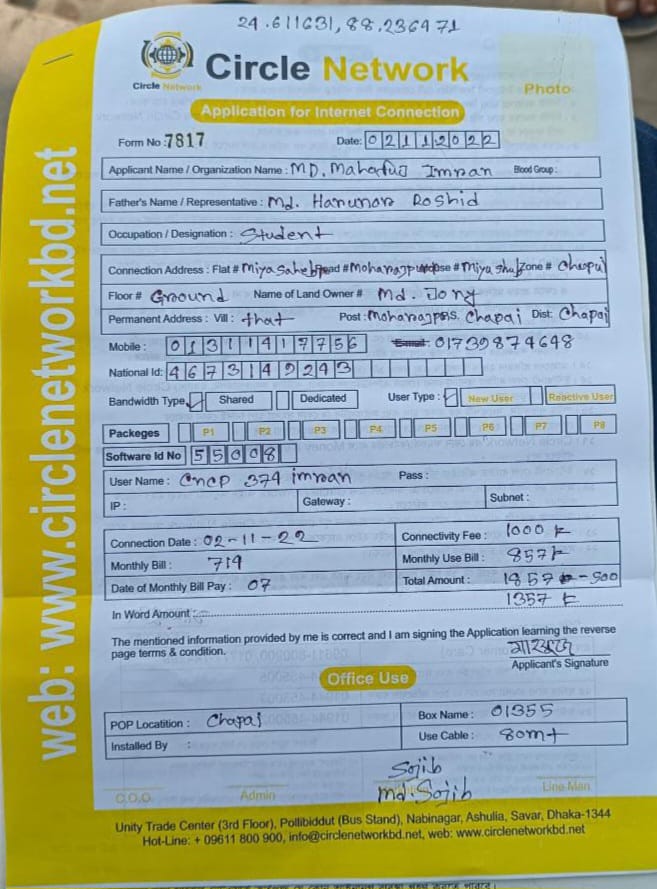 24.611631, 88.236471
Circle Network
Circle Network
Photo
Application for Internet Connection
Form No : 7817 Date: 02112022
Applicant Name / Organization Name : MD. Mahafuj Imran Blood Group :
Father's Name / Representative : Md. Harunor Roshid
Occupation / Designation : Student
Connection Address : Flat # Miya Saheb Road # Moharajpur House # Miya Zone # Chapai
Floor # Ground Name of Land Owner # Md. Jony
Permanent Address : Vill : that Post : Moharajpur P.S. Chapai Dist: Chapai
Mobile : 01311417756 Email: 01739874648
National Id: 4673149243
Bandwidth Type Shared Dedicated User Type : New User Reactive User
Packeges P1 P2 P3 P4 P5 P6 P7 P8
Software Id No 55008
User Name : cncp 374 imran Pass :
IP : Gateway : Subnet :
Connection Date : 02-11-22 Connectivity Fee : 1000
Monthly Bill : 719 Monthly Use Bill : 857
Date of Monthly Bill Pay : 07 Total Amount : 1857 - 500
1357
In Word Amount :
The mentioned information provided by me is correct and I am signing the Application learning the reverse
page terms & condition.
Applicant's Signature
Office Use
POP Locatition : Chapai Box Name : 01355
Installed By : Use Cable : 80mt
Sojib
Md. Sojib
C.O.O Admin Line Man
Unity Trade Center (3rd Floor), Pollibiddut (Bus Stand), Nabinagar, Ashulia, Savar, Dhaka-1344
Hot-Line: + 09611 800 900, info@circlenetworkbd.net, web: www.circlenetworkbd.net
web: www.circlenetworkbd.net